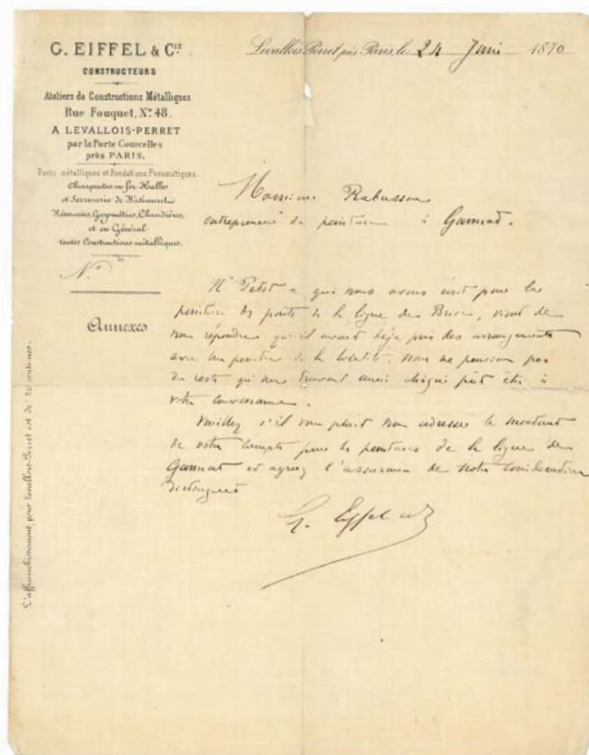 G. EIFFEL & CIE
CONSTRUCTEURS
Ateliers de Constructions Métalliques
Rue Fouquet, No 48.
A LEVALLOIS-PERRET
par la Porte Courcelles
près PARIS.
Ponts métalliques et Fondations Pneumatiques.
Charpentes en fer, Halles
et Serrurerie de Bâtiment
Réservoirs, Gazomètres, Chaudières,
et en Général
toutes Constructions métalliques.
No
Annexes
L'affranchissement pour Levallois-Perret est de centimes.
Levallois-Perret près Paris, le 24 Juin 1870
Monsieur Rabusson
entrepreneur de peinture à Gannat.
Mr Petot a qui nous avons écrit pour les
peinture des ponts de la ligne de, vient de
nous répondre qu'il avait déjà pris des arrangements
avec un peintre de la localité. Nous ne pensions pas
du reste qui nous aussi éloigné peut etre à
votre convenance.
Veuillez s'il vous plait nous adresser le montant
de votre compte pour les peintures de la ligne de
Gannat et agréez l'assurance de notre considération
distinguée
G. Eiffel et Cie